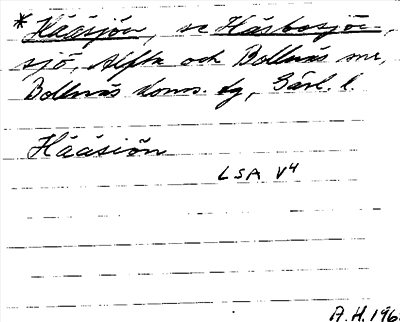 * Hååsjön, se Håsbosjön,
sjö, Alfta och Bollnäs snr,
Bollnäs doms. tg, Gävl. l.
Hååsiön
LSA V4
A.H. 196